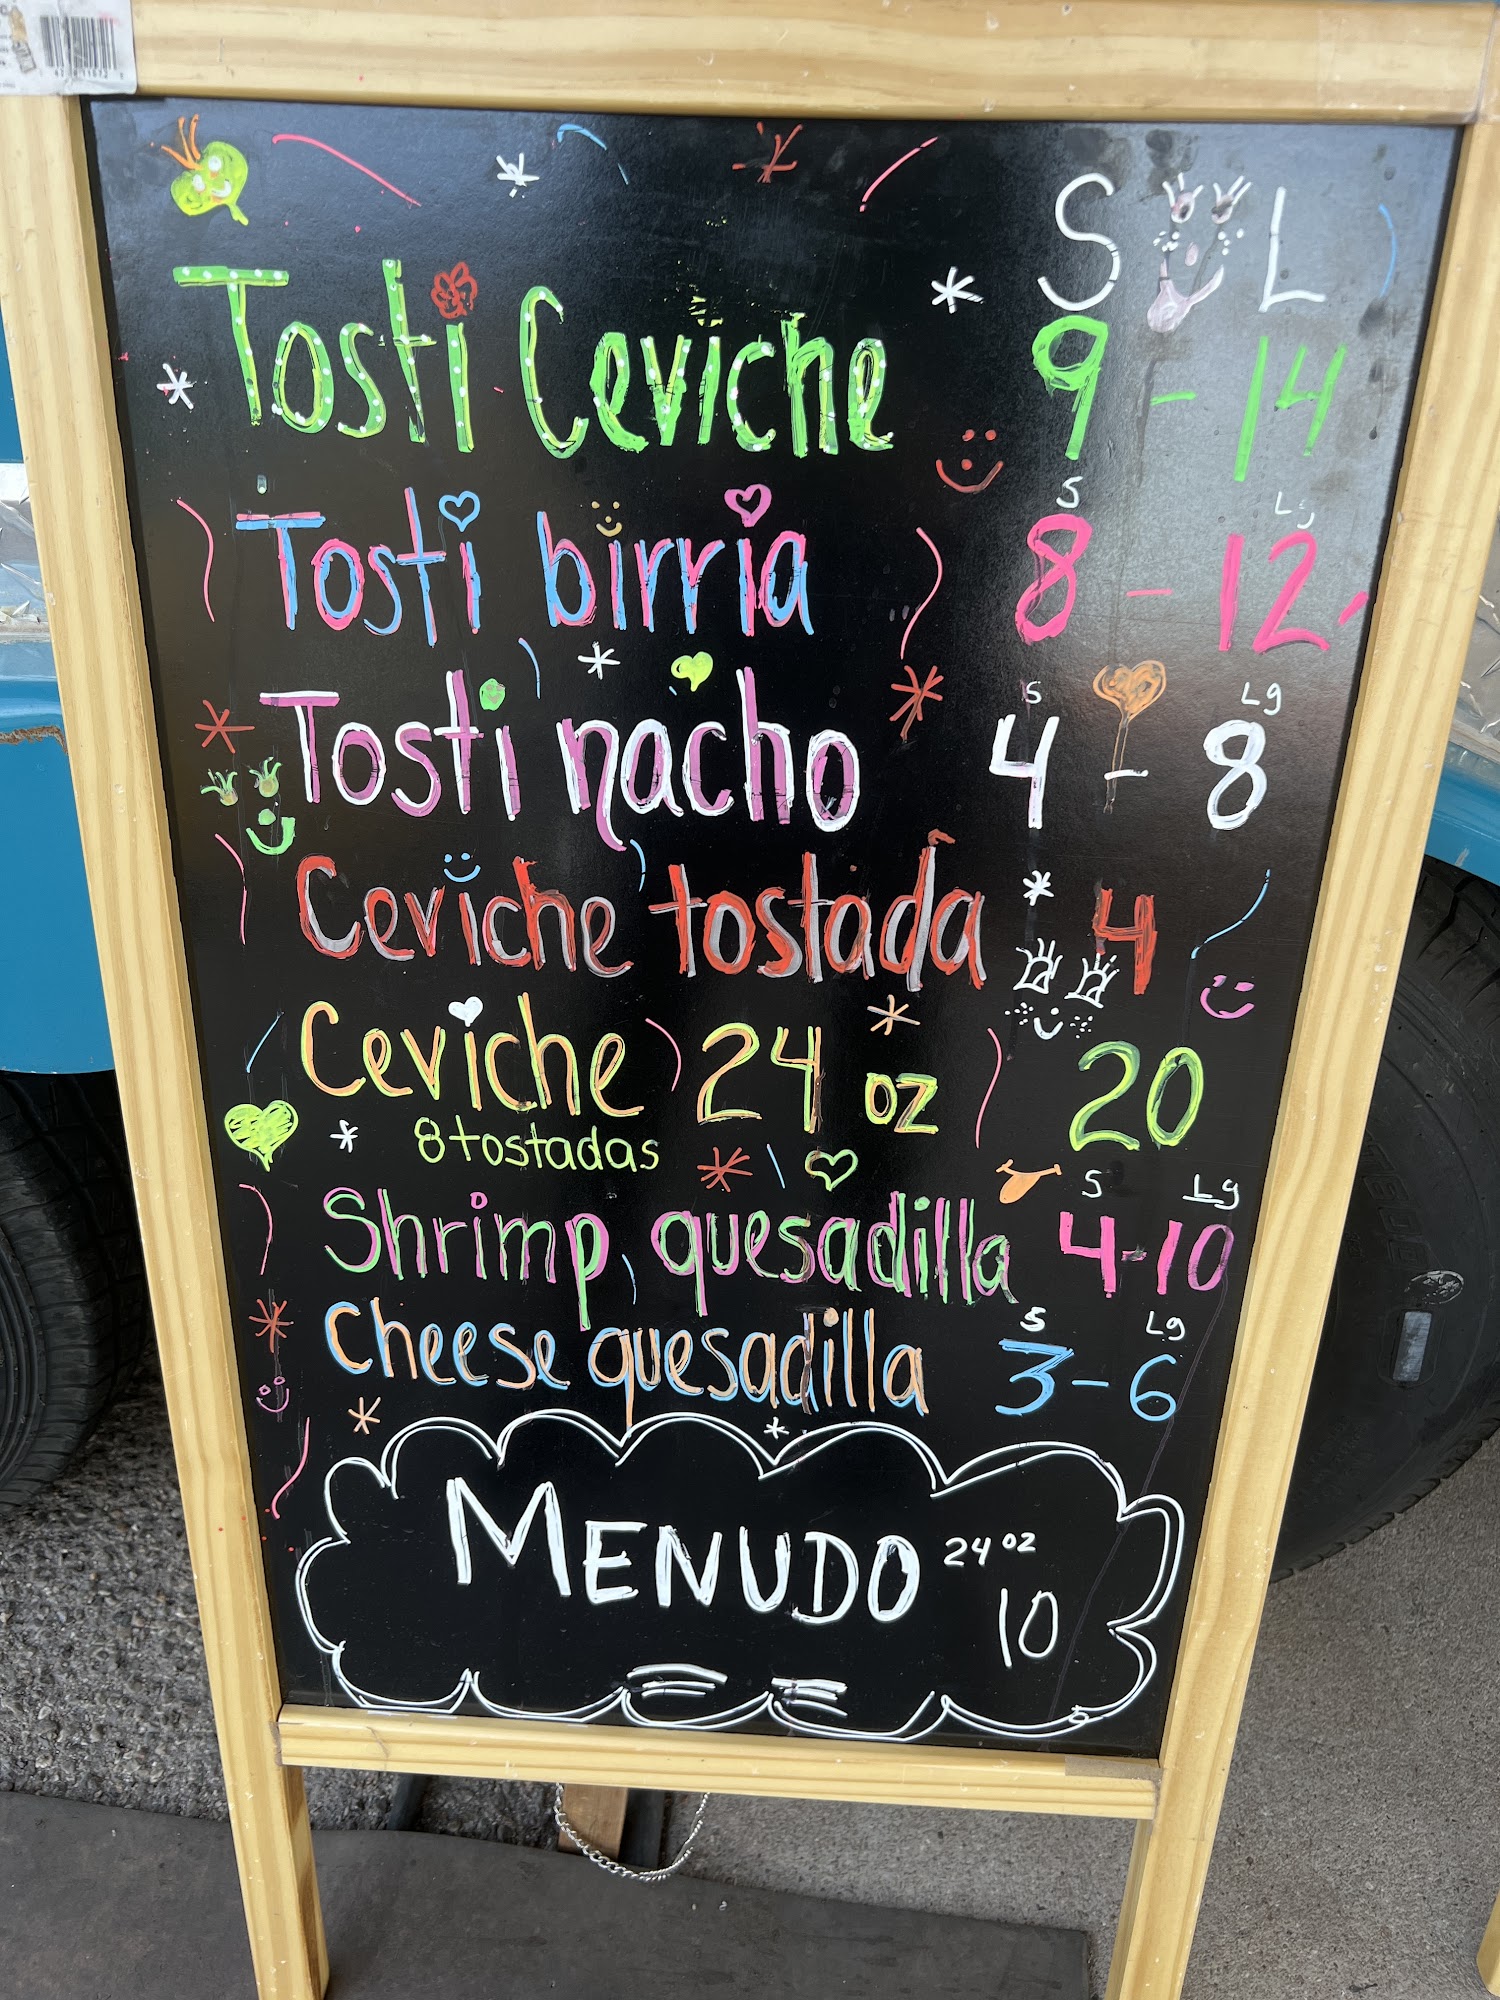 S L
Tosti Ceviche 9 - 14
S Lg
Tosti birria 8 - 12
S Lg
Tosti nacho 4 - 8
Ceviche tostada 4
Ceviche 24 oz 20
8 tostadas
S Lg
Shrimp quesadilla 4-10
S Lg
Cheese quesadilla 3-6
MENUDO 24 oz
10